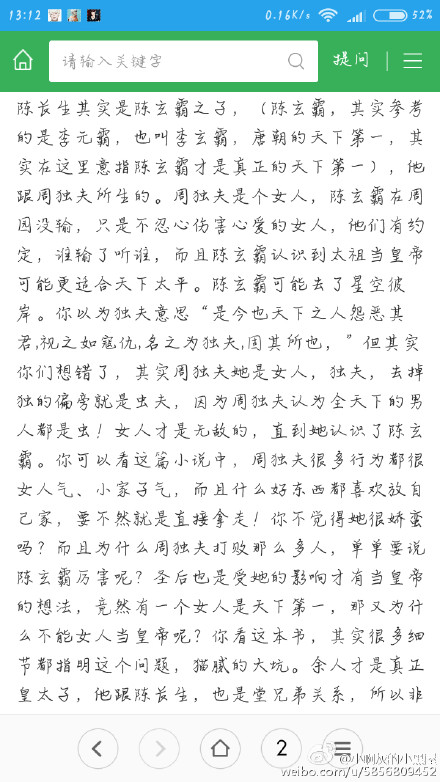 13:12
0.16K/s
52%
请输入关键字
提问
陈长生其实是陈玄霸之子，（陈玄霸，其实参考
的是李元霸，也叫李玄霸，唐朝的天下第一，其
实在这里意指陈玄霸才是真正的天下第一），他
跟周独夫所生的。周独夫是个女人，陈玄霸在周
园没输，只是不忍心伤害心爱的女人，他们有约
定，谁输了听谁，而且陈玄霸认识到太祖当皇帝
可能更适合天下太平。陈玄霸可能去了星空彼
岸。你以为独夫意思“是今也天下之人怨恶其
君,视之如寇仇,名之为独夫,固其所也，”但其实
你们想错了，其实周独夫她是女人，独夫，去掉
独的偏旁就是虫夫，因为周独夫认为全天下的男
人都是虫！女人才是无敌的，直到她认识了陈玄
霸。你可以看这篇小说中，周独夫很多行为都很
女人气、小家子气，而且什么好东西都喜欢放自
己家，要不然就是直接拿走！你不觉得她很娇蛮
吗？而且为什么周独夫打败那么多人，单单要说
陈玄霸厉害呢？圣后也是受她的影响才有当皇帝
的想法，竟然有一个女人是天下第一，那又为什
么不能女人当皇帝呢？你看这本书，其实很多细
节都指明这个问题，猫腻的大坑。余人才是真正
皇太子，他跟陈长生，也是堂兄弟关系，所以非
2
weibo.com/u/5856809452